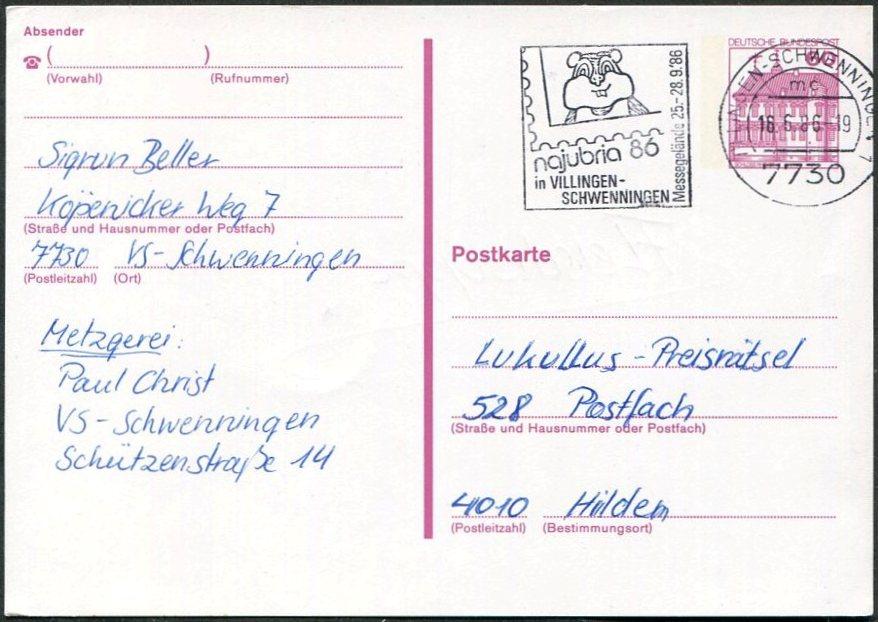 Absender
( )
(Vorwahl) (Rufnummer)
Sigrun Beller
Köpenicker Weg 7
(Straße und Hausnummer oder Postfach)
7730 VS-Schwenningen
(Postleitzahl) (Ort)
Metzgerei:
Paul Christ
VS-Schwenningen
Schützenstraße 14
najubria 86
in VILLINGEN-
SCHWENNINGEN
Messegelände 25.-28.9.'86
DEUTSCHE BUNDESPOST
60
EN-SCHWENNINGEN 1
mc
7730
Postkarte
Lukullus-Preisrätsel
528 Postfach
(Straße und Hausnummer oder Postfach)
4010 Hilden
(Postleitzahl) (Bestimmungsort)